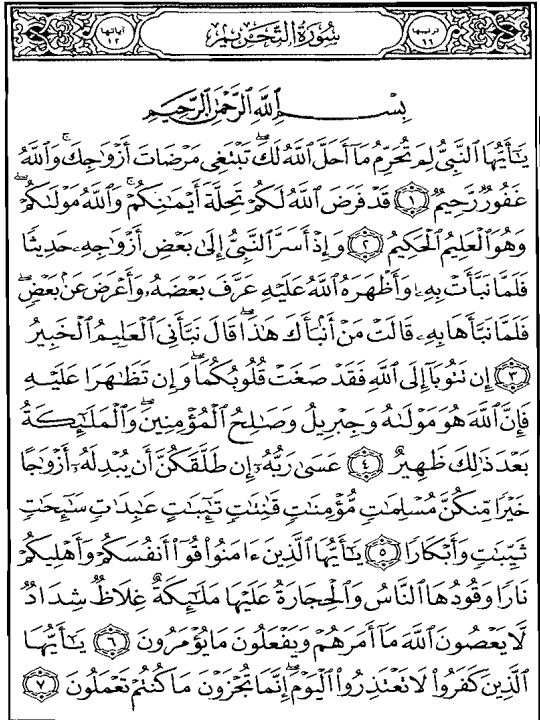 ترتيبها ٦٦ سُورَةُ التَّحْرِيمِ آياتها ١٢
بِسْمِ ٱللَّهِ ٱلرَّحْمَٰنِ ٱلرَّحِيمِ
يَٰٓأَيُّهَا ٱلنَّبِىُّ لِمَ تُحَرِّمُ مَآ أَحَلَّ ٱللَّهُ لَكَ ۖ تَبْتَغِى مَرْضَاتَ أَزْوَٰجِكَ ۚ وَٱللَّهُ
غَفُورٌ رَّحِيمٌ ﴿١﴾ قَدْ فَرَضَ ٱللَّهُ لَكُمْ تَحِلَّةَ أَيْمَٰنِكُمْ ۚ وَٱللَّهُ مَوْلَىٰكُمْ ۖ
وَهُوَ ٱلْعَلِيمُ ٱلْحَكِيمُ ﴿٢﴾ وَإِذْ أَسَرَّ ٱلنَّبِىُّ إِلَىٰ بَعْضِ أَزْوَٰجِهِۦ حَدِيثًا
فَلَمَّا نَبَّأَتْ بِهِۦ وَأَظْهَرَهُ ٱللَّهُ عَلَيْهِ عَرَّفَ بَعْضَهُۥ وَأَعْرَضَ عَنۢ بَعْضٍ ۖ
فَلَمَّا نَبَّأَهَا بِهِۦ قَالَتْ مَنْ أَنۢبَأَكَ هَٰذَا ۖ قَالَ نَبَّأَنِىَ ٱلْعَلِيمُ ٱلْخَبِيرُ
﴿٣﴾ إِن تَتُوبَآ إِلَى ٱللَّهِ فَقَدْ صَغَتْ قُلُوبُكُمَا ۖ وَإِن تَظَٰهَرَا عَلَيْهِ
فَإِنَّ ٱللَّهَ هُوَ مَوْلَىٰهُ وَجِبْرِيلُ وَصَٰلِحُ ٱلْمُؤْمِنِينَ ۖ وَٱلْمَلَٰٓئِكَةُ
بَعْدَ ذَٰلِكَ ظَهِيرٌ ﴿٤﴾ عَسَىٰ رَبُّهُۥٓ إِن طَلَّقَكُنَّ أَن يُبْدِلَهُۥٓ أَزْوَٰجًا
خَيْرًا مِّنكُنَّ مُسْلِمَٰتٍ مُّؤْمِنَٰتٍ قَٰنِتَٰتٍ تَٰٓئِبَٰتٍ عَٰبِدَٰتٍ سَٰٓئِحَٰتٍ
ثَيِّبَٰتٍ وَأَبْكَارًا ﴿٥﴾ يَٰٓأَيُّهَا ٱلَّذِينَ ءَامَنُوا۟ قُوٓا۟ أَنفُسَكُمْ وَأَهْلِيكُمْ
نَارًا وَقُودُهَا ٱلنَّاسُ وَٱلْحِجَارَةُ عَلَيْهَا مَلَٰٓئِكَةٌ غِلَاظٌ شِدَادٌ
لَّا يَعْصُونَ ٱللَّهَ مَآ أَمَرَهُمْ وَيَفْعَلُونَ مَا يُؤْمَرُونَ ﴿٦﴾ يَٰٓأَيُّهَا
ٱلَّذِينَ كَفَرُوا۟ لَا تَعْتَذِرُوا۟ ٱلْيَوْمَ ۖ إِنَّمَا تُجْزَوْنَ مَا كُنتُمْ تَعْمَلُونَ ﴿٧﴾